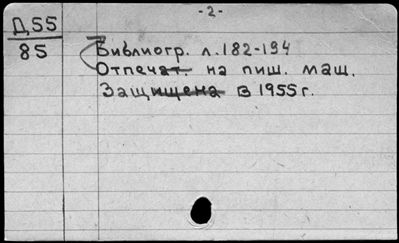 -2-
Д55
85
Библиогр. л. 182-194
Отпечат. на пиш. маш.
Защищена в 1955 г.